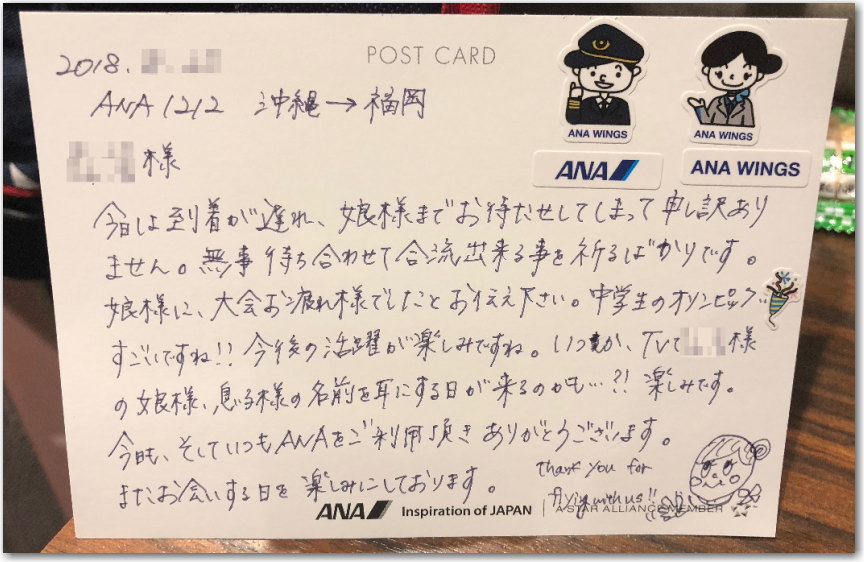 POST CARD
2018.
ANA 1212 沖縄→福岡
様
ANA WINGS
ANA WINGS
ANA
ANA WINGS
今日は到着が遅れ、娘様までお待たせしてしまって申し訳あり
ません。無事待ち合わせて合流出来る事を祈るばかりです。
娘様に、大会お疲れ様でしたとお伝え下さい。中学生のオリンピック
すごいですね!! 今後の活躍が楽しみですね。いつか、TVで 様
の娘様、息子様の名前を耳にする日が来るのかも…?! 楽しみです。
今日も、そしていつもANAをご利用頂きありがとうございます。
またお会いする日を楽しみにしております。
thank you for
flying with us!!
ANA Inspiration of JAPAN
A STAR ALLIANCE MEMBER